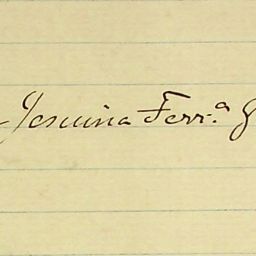 Jesuina Ferr.ª